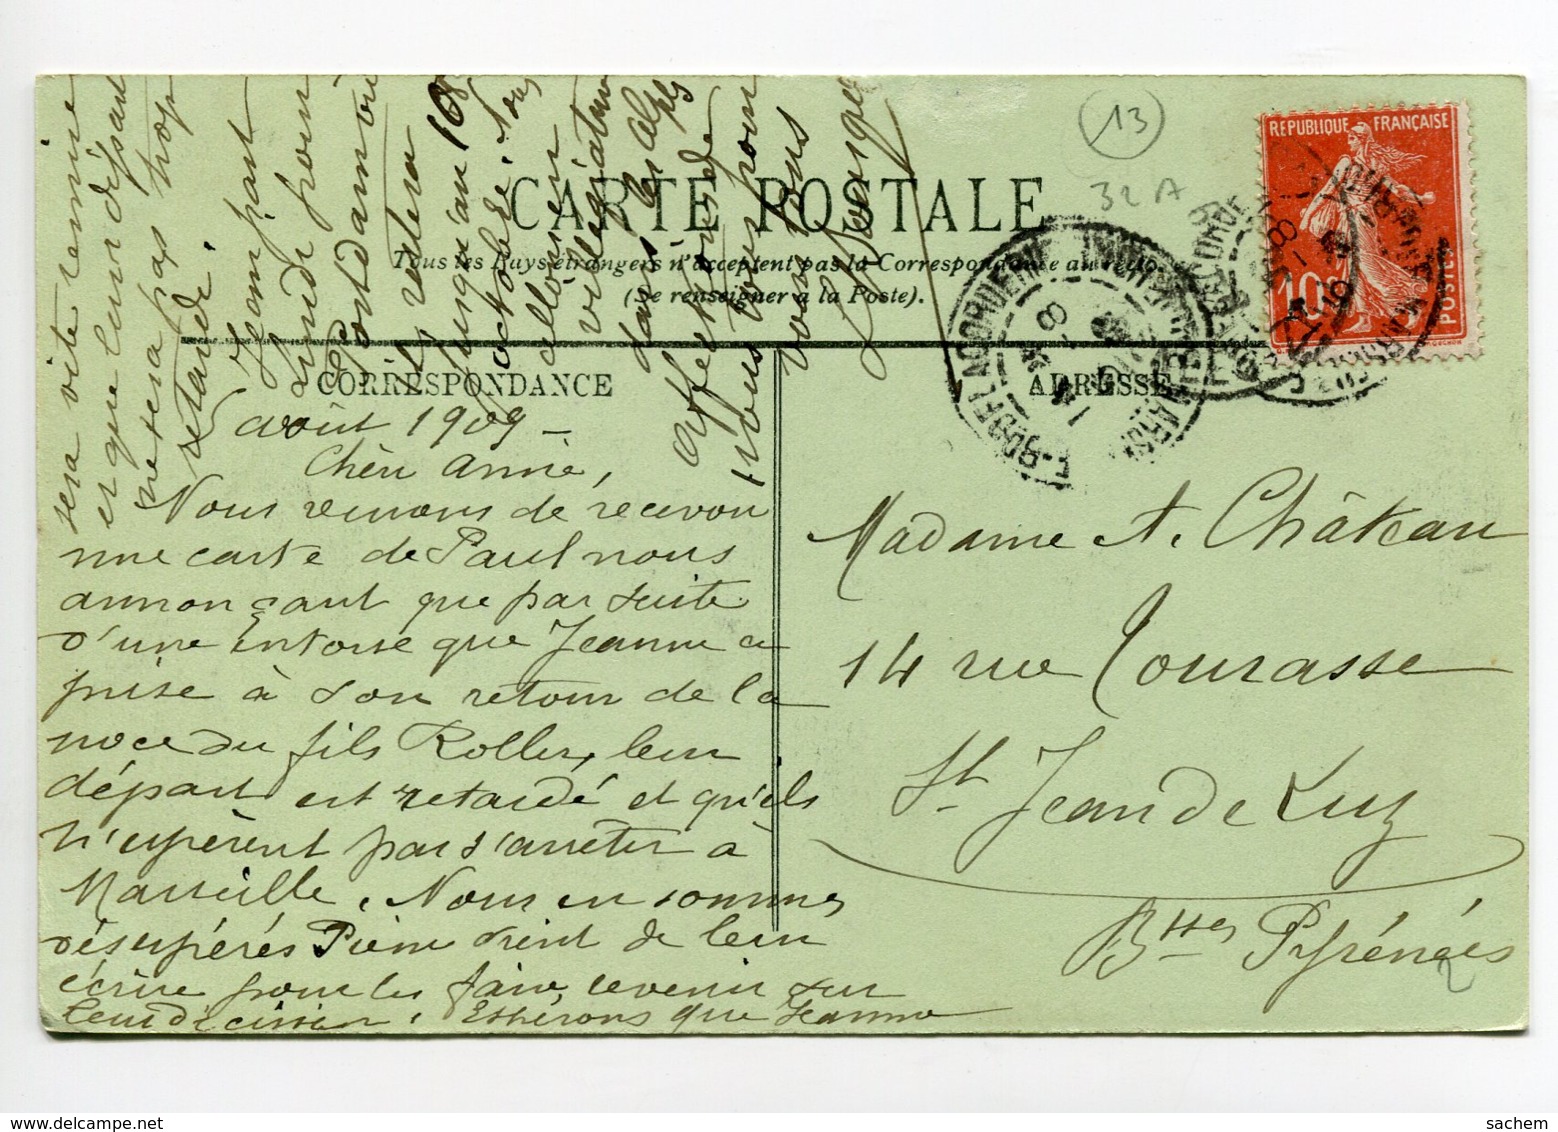 CARTE POSTALE
Tous les Pays étrangers n'acceptent pas la Correspondance au recto.
(Se renseigner à la Poste).
CORRESPONDANCE
ADRESSE
13
32 A
REPUBLIQUE FRANÇAISE
10
POSTES
août 1909 -
Chère Annie,
Nous venons de recevoir
une carte de Paul nous
annonçant que par suite
d'une entorse que Jeanne a
prise à son retour de la
noce du fils Roller, leur
départ est retardé et qu'ils
n'espèrent pas s'arrêter à
Marseille. Nous en sommes
désespérés Pierre vient de leur
écrire pour les faire revenir sur
leur décision. Espérons que Jeanne
sera vite remise
et que leur départ
ne sera pas trop
retardé.
Jean part
lundi pour
Portdamou
il restera
jusqu'au 10
octobre. Nous
allons en
villégiature
dans les Alpes
Affectoueuse
Madame A. Château
14 rue Tourasse
St Jean de Luz
Bsses Pyrénées
2
sachem